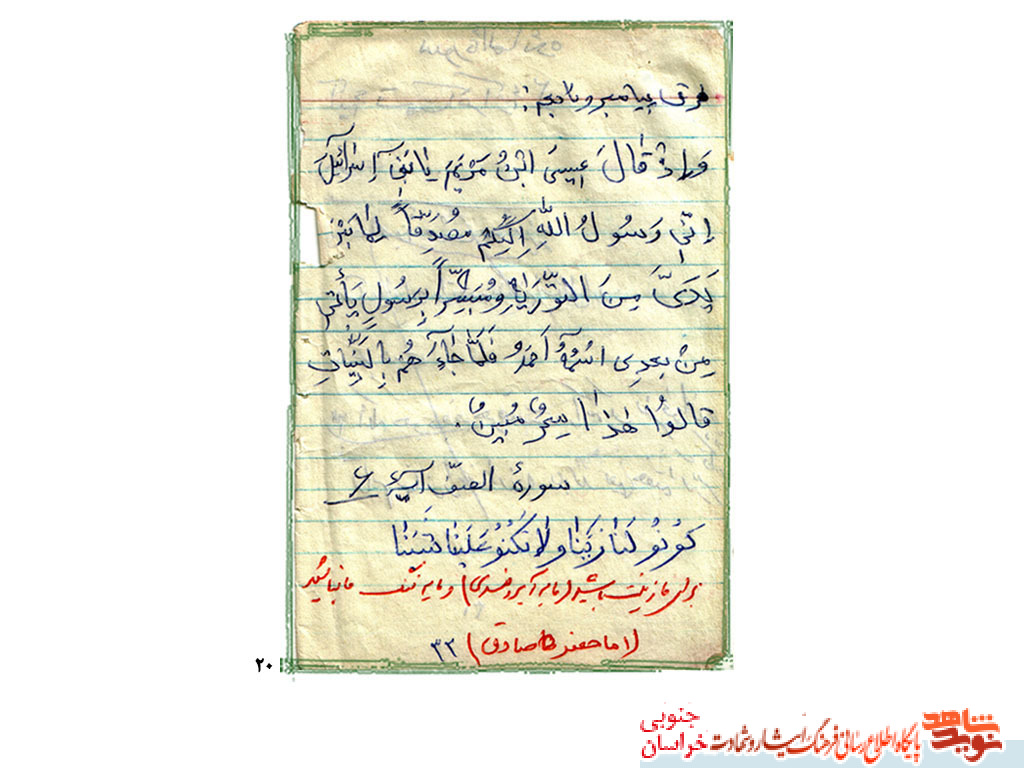 فرق پیامبر و نامبر :
وَ اِذْ قٰالَ عیسَی ابْنُ مَرْیَمَ یٰا بَنی اِسْرائیلَ
اِنّی رَسُولُ اللّٰهِ اِلَیْکُمْ مُصَدِّقاً لِمٰا بَیْنَ
یَدَیَّ مِنَ التَّوْریٰةِ وَ مُبَشِّراً بِرَسُولٍ یَأْتی
مِنْ بَعدِی اسْمُهُ اَحْمَدُ فَلَمّٰا جٰاءَ هُمْ بِالْبَیِّنٰاتِ
قالُوا هٰذٰا سِحْرٌ مُبینٌ .
سورهٔ الصّف آیهٔ ۶
کُونُو لَنٰا زَیْنٰا وَ لاٰ تَکُنُو عَلَیْنٰا شَیْنٰا
برای ما زینت باشید (مایه آبرومندی) و مایه ننگ ما نباشید
(امام جعفر صادق) ۳۲
۲۰
نوید شاهد
پایگاه اطلاع رسانی فرهنگ ایثار و شهادت
جنوبی
خراسان